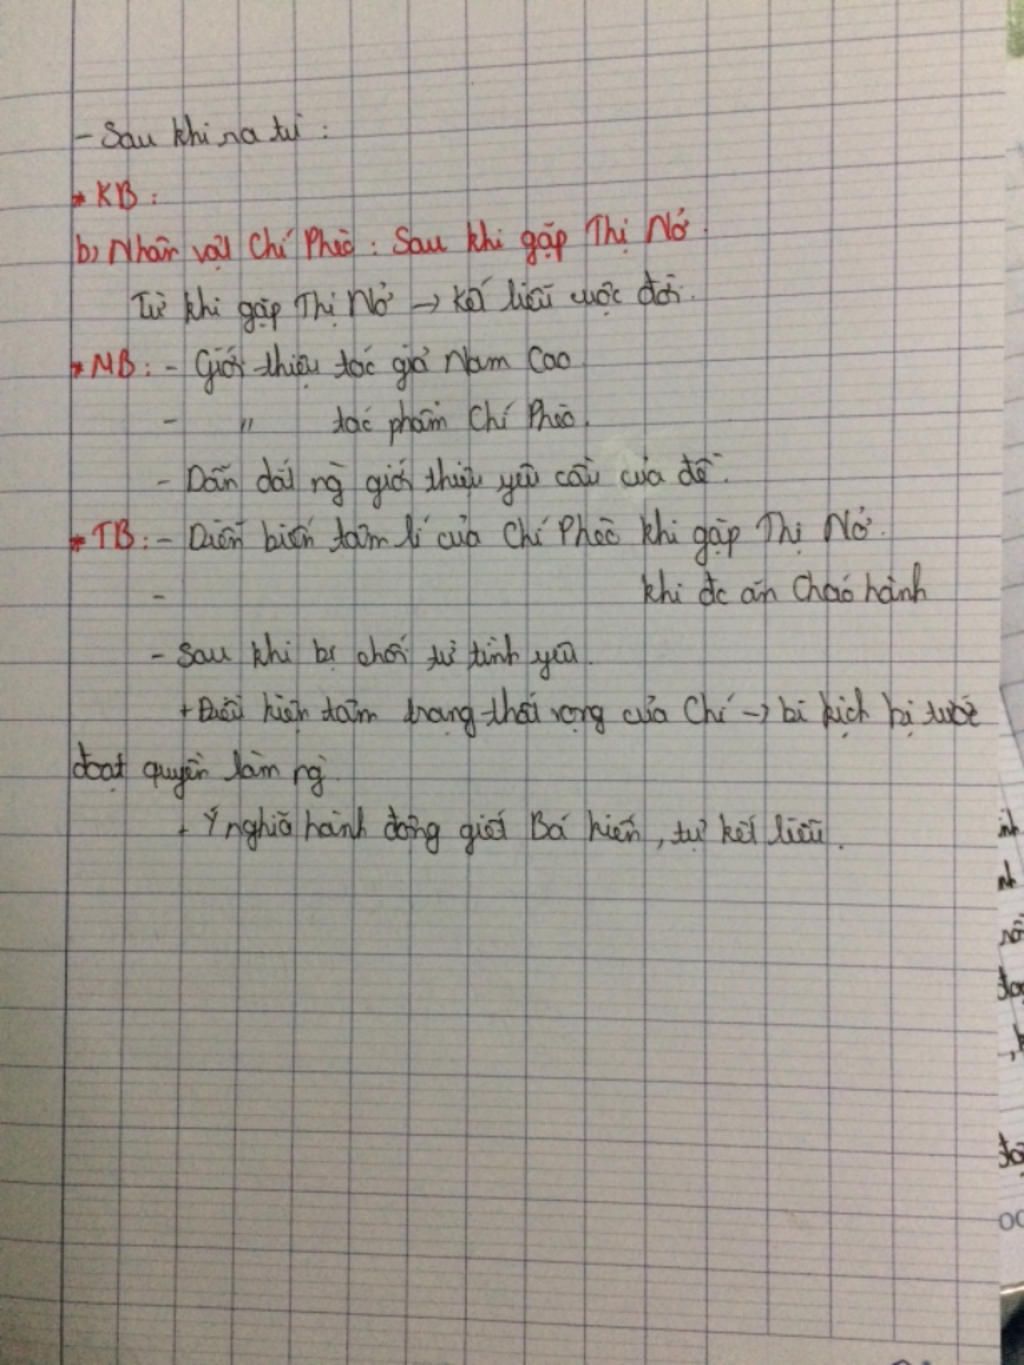 - Sau khi ra tù :
* KB :
b) Nhân vật Chí Phèo : Sau khi gặp Thị Nở.
Từ khi gặp Thị Nở → kết liễu cuộc đời.
* MB : - Giới thiệu tác giả Nam Cao
- " tác phẩm Chí Phèo.
- Dẫn dắt ng giới thiệu yêu cầu của đề.
* TB : - Diễn biến tâm lí của Chí Phèo khi gặp Thị Nở.
- khi đc ăn Cháo hành
- Sau khi bị chối từ tình yêu.
+ Biểu hiện tâm trạng thất vọng của Chí → bi kịch bị tước
đoạt quyền làm ng
+ Ý nghĩa hành động giết Bá kiến, tự kết liễu.